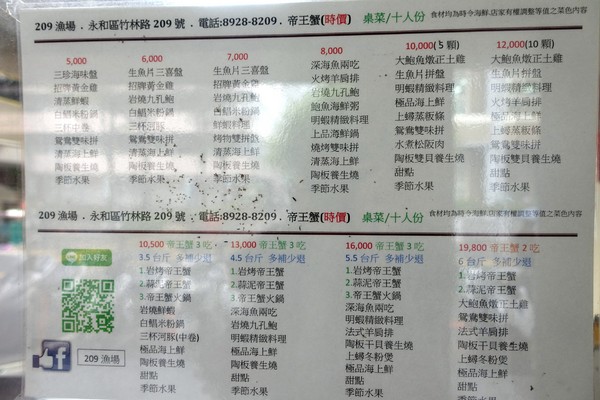 209 漁場 . 永和區竹林路 209 號 . 電話:8928-8209 . 帝王蟹(時價) 桌菜/十人份 食材均為時令海鮮,店家有權調整等值之菜色內容
5,000
三珍海味盤
招牌黃金雞
清蒸鮮蝦
白鯧米粉鍋
三杯中卷
鴛鴦雙味拼
清蒸海上鮮
陶板養生燒
季節水果
6,000
生魚片三喜盤
招牌黃金雞
岩燒九孔鮑
白鯧米粉鍋
三杯河豚
鴛鴦雙味拼
清蒸海上鮮
陶板養生燒
季節水果
7,000
生魚片三喜盤
招牌黃金雞
岩燒九孔鮑
白鯧米粉鍋
鮮蝦料理
烤物雙拼盤
清蒸海上鮮
陶板養生燒
季節水果
8,000
深海魚兩吃
火烤羊肩排
生魚片拼盤
鮑魚海鮮粥
明蝦精緻料理
上品海鮮鍋
燒烤雙味拼
清蒸海上鮮
陶板養生燒
季節水果
10,000(5 顆)
大鮑魚燉正土雞
生魚片拼盤
明蝦精緻料理
極品海上鮮
上蟳蒸粄條
鴛鴦雙味拼
水煮松阪肉
陶板雙貝養生燒
甜點
季節水果
12,000(10 顆)
大鮑魚燉正土雞
生魚片拼盤
明蝦精緻料理
火烤羊肩排
極品海上鮮
上蟳蒸粄條
鴛鴦雙味拼
陶板雙貝養生燒
甜點
季節水果
209 漁場 . 永和區竹林路 209 號 . 電話:8928-8209 . 帝王蟹(時價) 桌菜/十人份 食材均為時令海鮮,店家有權調整等值之菜色內容
加入好友
209 漁場
10,500 帝王蟹 3 吃
3.5 台斤 多補少退
1.岩烤帝王蟹
2.蒜泥帝王蟹
3.帝王蟹火鍋
岩燒鮮蝦
白鯧米粉鍋
三杯河豚(中卷)
極品海上鮮
陶板養生燒
甜點
季節水果
13,000 帝王蟹 3 吃
4.5 台斤 多補少退
1.岩烤帝王蟹
2.蒜泥帝王蟹
3.帝王蟹火鍋
深海魚兩吃
岩燒九孔鮑
明蝦精緻料理
極品海上鮮
陶板養生燒
甜點
季節水果
16,000 帝王蟹 3 吃
5.5 台斤 多補少退
1.岩烤帝王蟹
2.蒜泥帝王蟹
3.帝王蟹火鍋
深海魚兩吃
明蝦精緻料理
法式羊肩排
陶板干貝養生燒
上蟳冬粉煲
極品海上鮮
甜點
季節水果
19,800 帝王蟹 2 吃
6 台斤 多補少退
1.岩烤帝王蟹
2.蒜泥帝王蟹
大鮑魚燉正土雞
鴛鴦雙味拼
明蝦精緻料理
法式羊肩排
陶板干貝養生燒
上蟳冬粉煲
極品海上鮮
甜點
季節水果